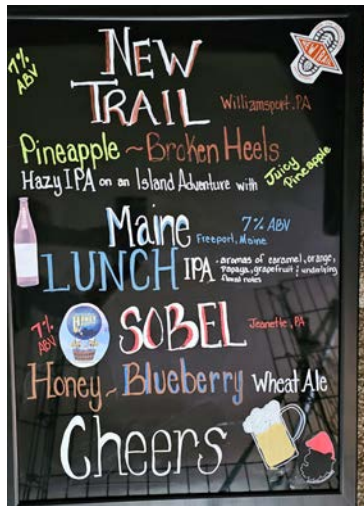 NEW
7% ABV
TRAIL
Williamsport, PA
Pineapple ~ Broken Heels
Hazy IPA on an Island Adventure with Juicy Pineapple
Maine 7% ABV
Freeport, Maine
LUNCH IPA
• aromas of caramel, orange,
papaya, grapefruit & underlying
floral notes
7% ABV
SOBEL
Jeanette, PA
Honey ~ Blueberry Wheat Ale
Cheers